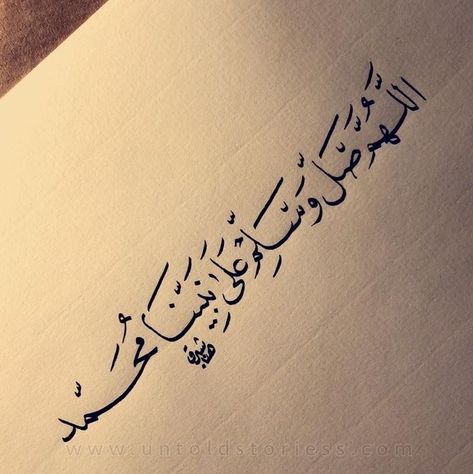 اللهم صل وسلم على نبينا محمد
www.untoldstoriess.com